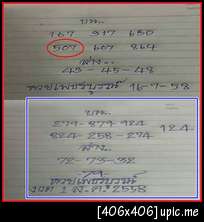 บน..
167 937 650
507 607 864
ล่าง..
43-45-48
หวยเพชรบูรณ์ 16-7-58
บน..
279-879-924
824-258-274
924
ล่าง..
72-73-32
79
หวยเพชรบูรณ์
งวด 1 ส.ค. 2558
[406x406] upic.me